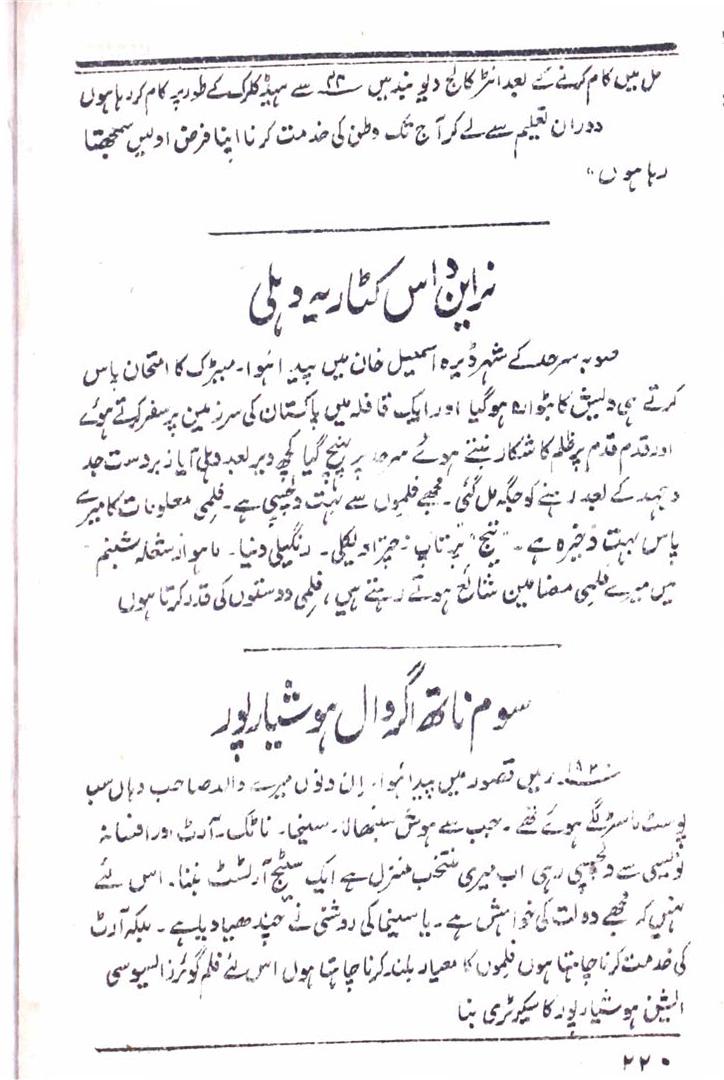 مل میں کام کرنے کے بعد انٹر کالج دیوبند میں ۴۳ء سے ہیڈ کلرک کے طور پر کام کر رہا ہوں
دوران تعلیم سے لے کر آج تک وطن کی خدمت کرنا اپنا فرض اولیں سمجھتا
رہا ہوں"
نراین داس کٹاریہ دہلی
صوبہ سرحد کے شہر ڈیرہ اسمٰعیل خان میں پیدا ہُوا۔ میٹرک کا امتحان پاس
کرتے ہی دلیش کا بٹوارہ ہوگیا اور ایک قافلہ میں پاکستان کی سرزمین پر سفر کرتے ہوئے
اور قدم قدم پر ظلم کا شکار بنتے ہوئے سرحد پر پہنچ گیا کچھ دیر بعد دہلی آیا زبردست جد
و جہد کے بعد رہنے کو جگہ مل گئی۔ مجھے فلموں سے بہت دلچسپی ہے۔ فلمی معلومات کا میرے
پاس بہت ذخیرہ ہے۔ "تیج" پرتاپ۔ چترا ویکلی۔ رنگیلی دنیا۔ ماہوار شعلہ شبنم
میں میرے فلمی مضامین شائع ہوتے رہتے ہیں، فلمی دوستوں کی قدر کرتا ہوں
سوم ناتھ اگروال ہوشیارپور
۱۹۲۰ء میں قصور میں پیدا ہُوا۔ اِن دنوں میرے والد صاحب وہاں سب
پوسٹ ماسٹر لگے ہوئے تھے۔ جب سے ہوش سنبھالا۔ سنیما۔ ناٹک۔ آرٹ اور افسانہ
نویسی سے دلچسپی رہی اب میری منتخب منزل ہے ایک سٹیج آرٹسٹ بننا۔ اس لئے
نہیں کہ مجھے دولت کی خواہش ہے۔ یا سنیما کی روشنی نے چندھیا دیا ہے۔ بلکہ آرٹ
کی خدمت کرنا چاہتا ہوں فلموں کا معیار بلند کرنا چاہتا ہوں اس لئے فلم گوئرز ایسوسی
ایشن ہوشیارپور کا سیکرٹری بنا
۲۲۰